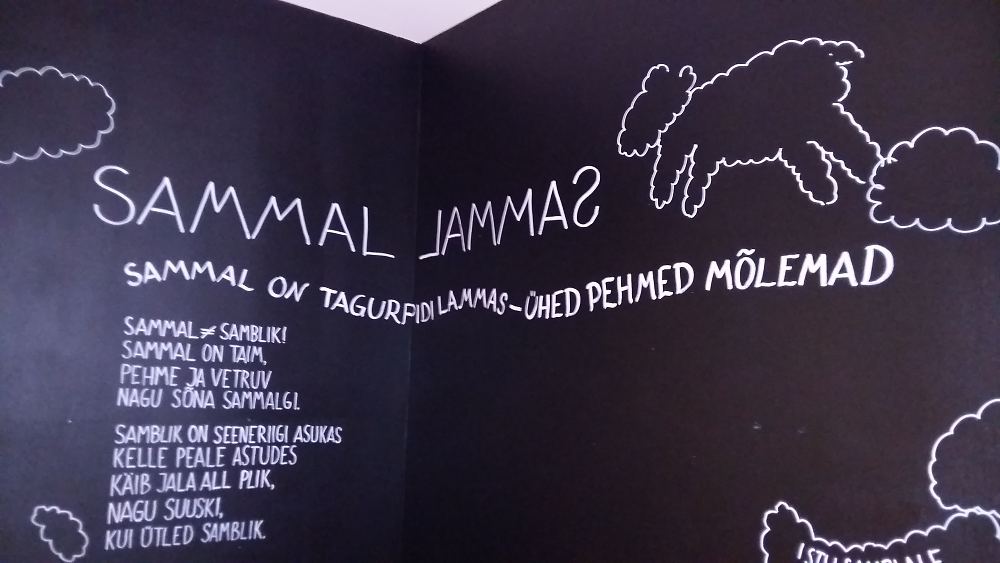 SAMMAL LAMMAS
SAMMAL ON TAGURPIDI LAMMAS – ÜHED PEHMED MÕLEMAD
SAMMAL ≠ SAMBLIK!
SAMMAL ON TAIM,
PEHME JA VETRUV
NAGU SÕNA SAMMALGI.
SAMBLIK ON SEENERIIGI ASUKAS
KELLE PEALE ASTUDES
KÄIB JALA ALL PLIK,
NAGU SUUSKI,
KUI ÜTLED SAMBLIK.
ISTU SAMBLALE